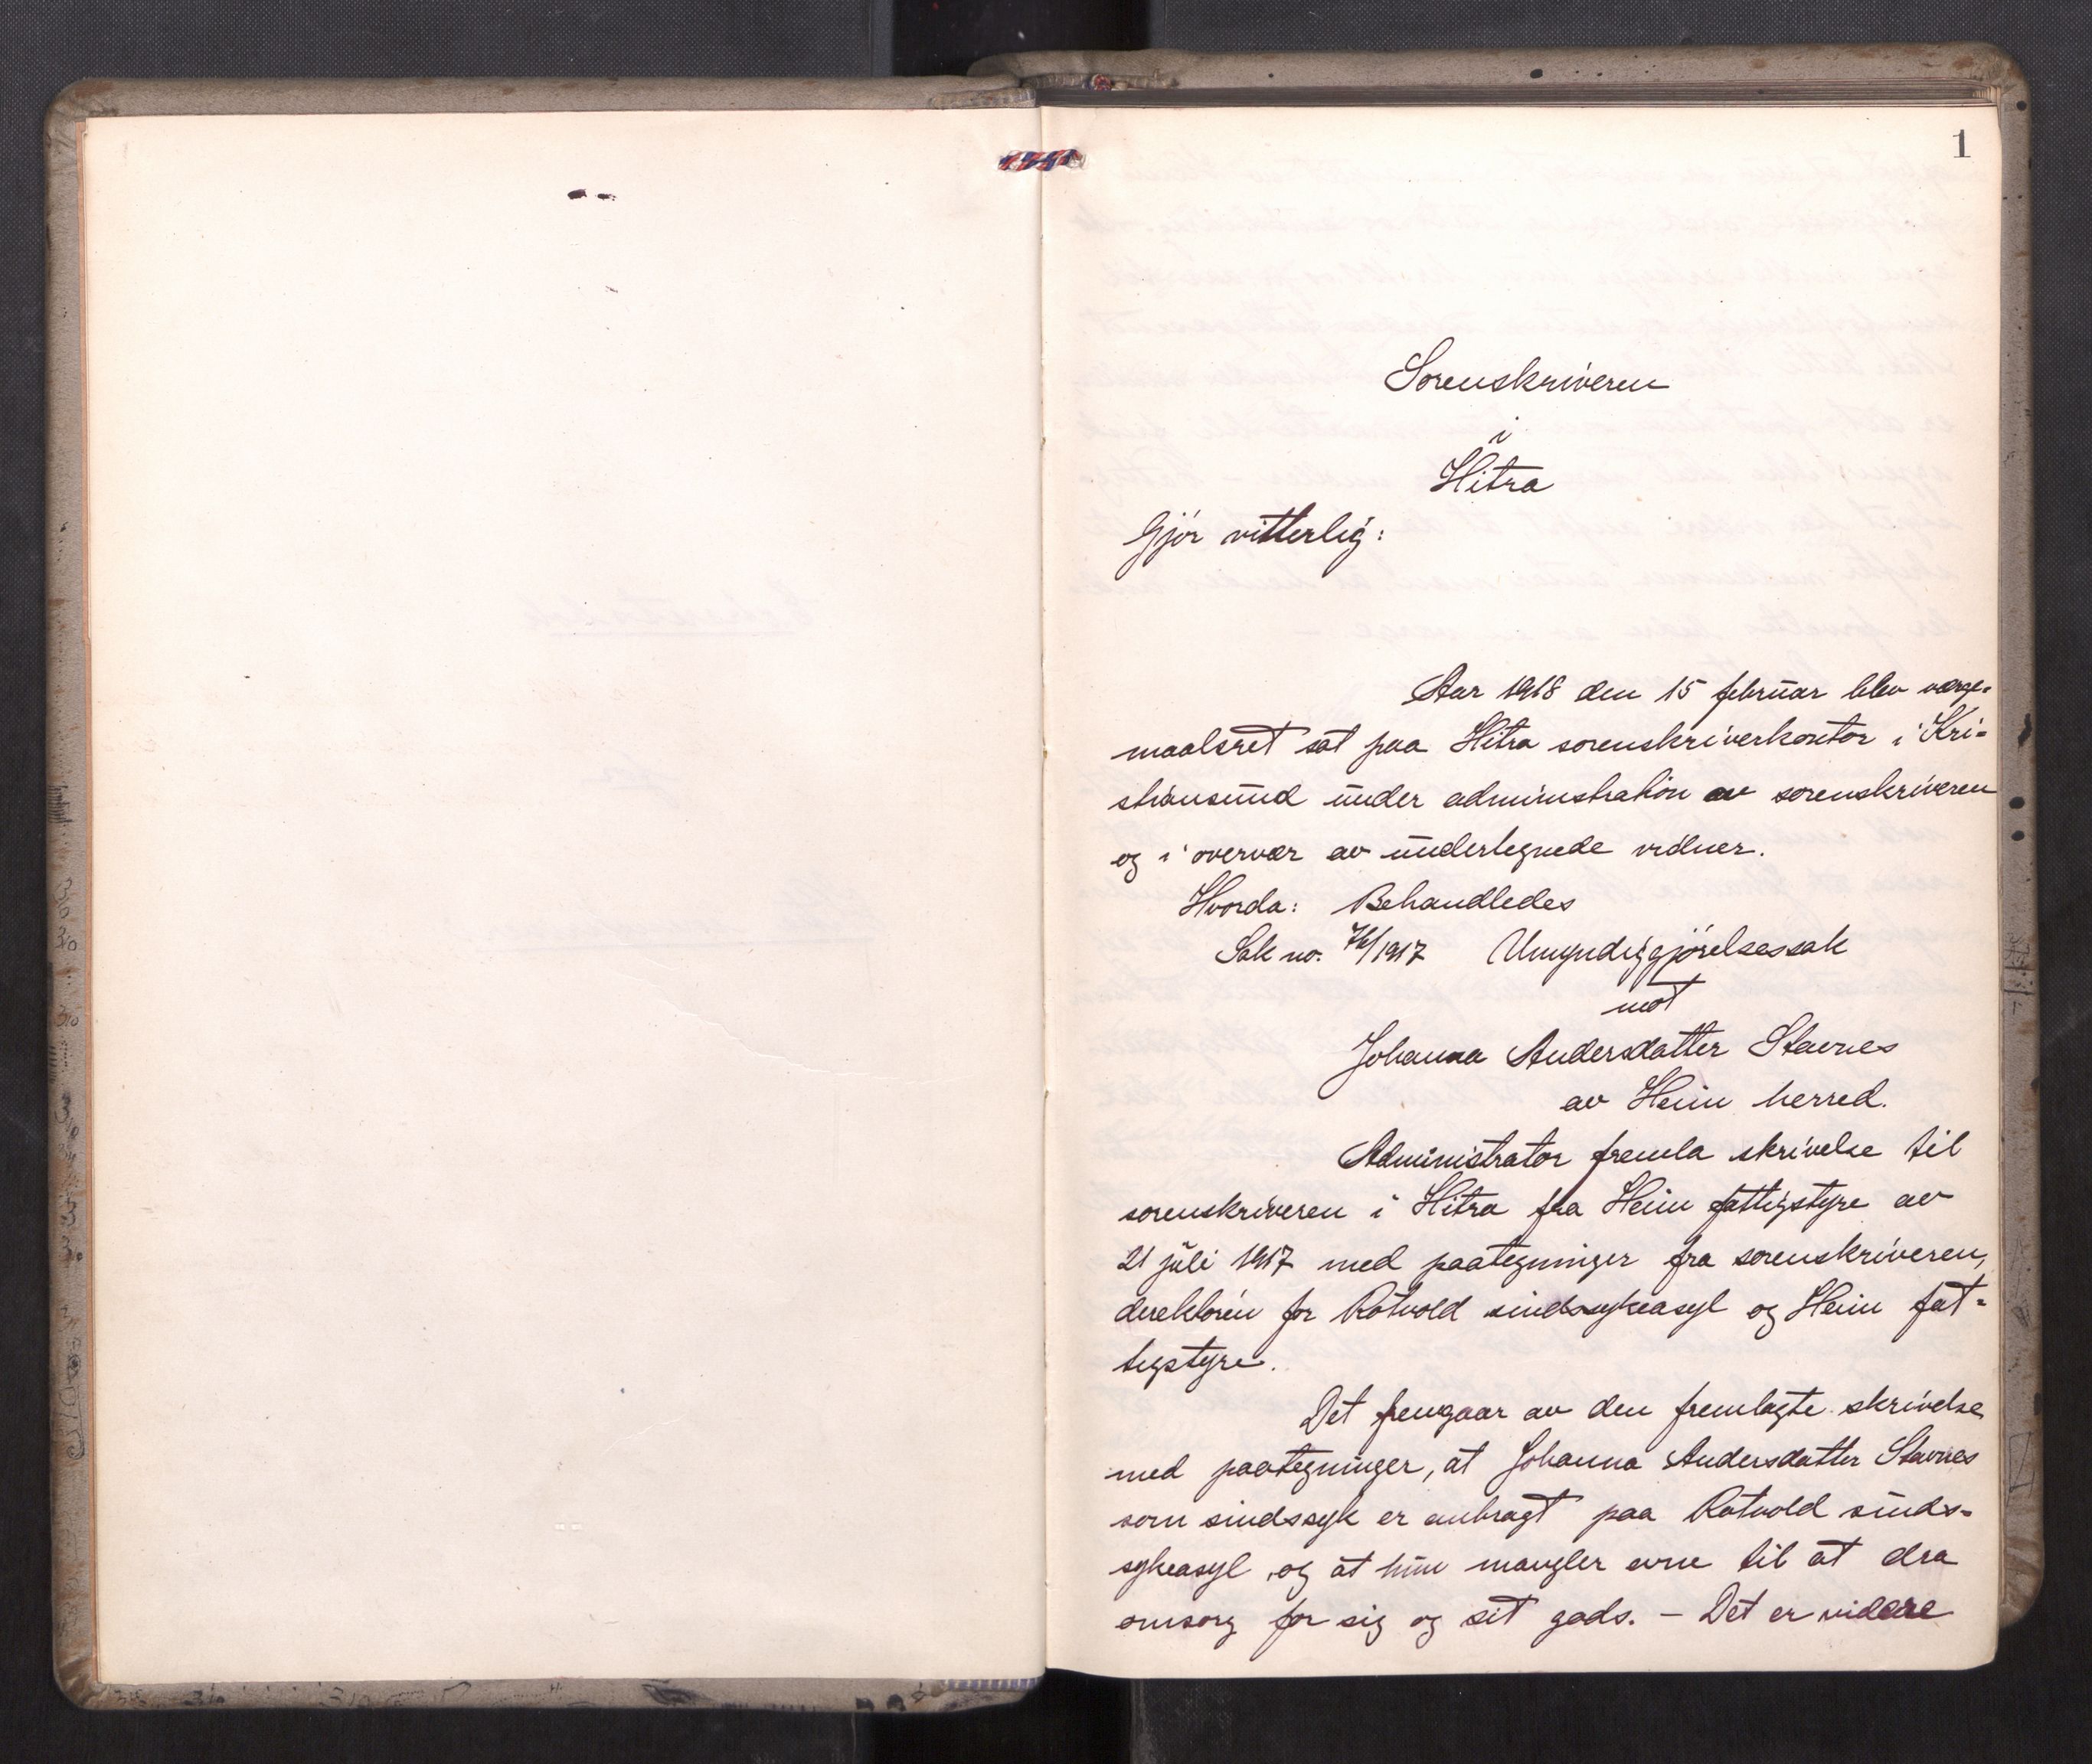 1
Sorenskriveren
i
Hitra
Gjør vitterlig:
Aar 1918 den 15 februar blev verge-
maalsret sat paa Hitra sorenskriverkontor i Kri-
stiansund under administration av sorenskriveren
og i overvær av undertegnede vidner.
Hvorda: Behandledes
Sak no. /1917 Umyndiggjørelsessak
mot
Johanna Andersdatter Stavnes
av Heim herred.
Administrator fremla skrivelse til
sorenskriveren i Hitra fra Heim fattigstyre av
21 juli 1917 med paategninger fra sorenskriveren,
direktøren for Rotvold sindssykeasyl og Heim fat-
tigstyre.
Det fremgaar av den fremlagte skrivelse
med paategninger, at Johanna Andersdatter Stavnes
som sindssyk er anbragt paa Rotvold sinds-
sykeasyl, og at hun mangler evne til at dra
omsorg for sig og sit gods. - Det er videre